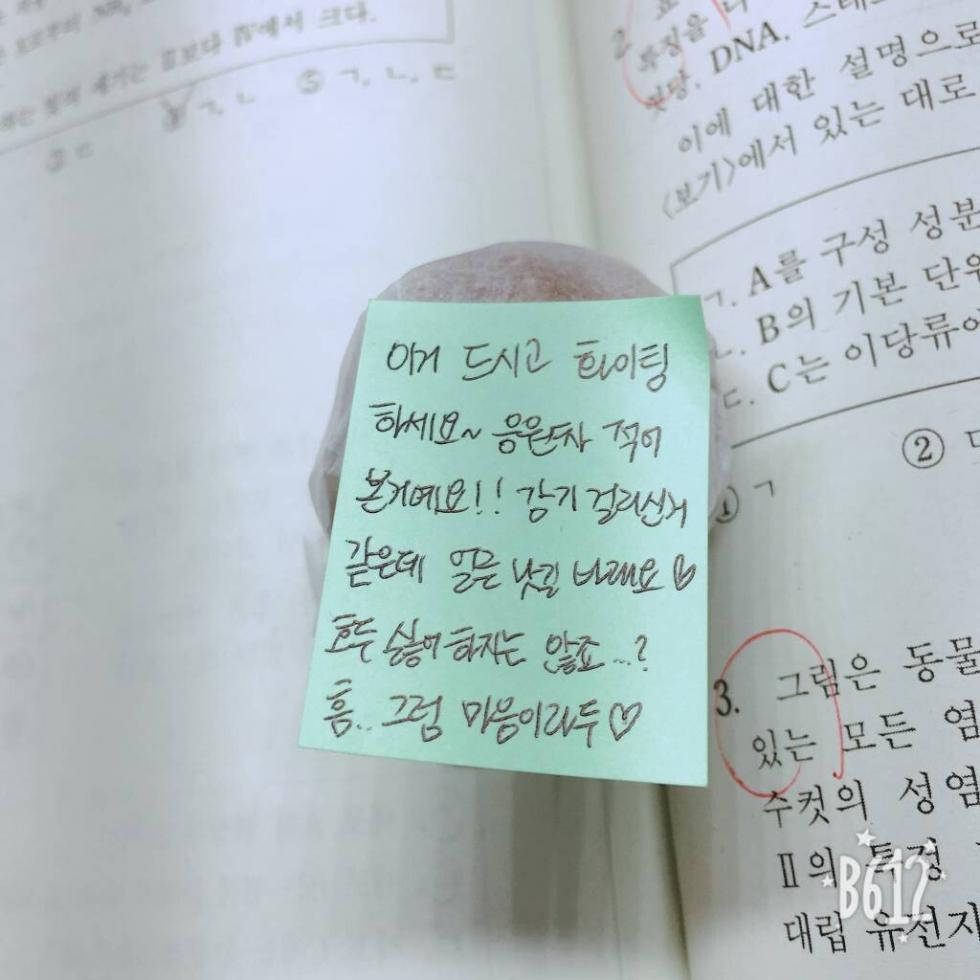 에서 크다.
ㄱ, ㄴ ⑤ ㄱ, ㄴ, ㄷ
2
DNA.
이에 대한 설명으로
<보기>에서 있는 대로
ㄱ. A를 구성 성분
ㄴ. B의 기본 단위
ㄷ. C는 이당류에
① ㄱ ②
이거 드시고 화이팅
하세요~ 응원차 적어
본거예요!! 감기 걸리신거
같은데 얼른 낫길 바래요♡
호두 싫어 하자는 않죠...?
흠.. 그럼 마음이라두♡
3. 그림은 동물
있는 모든 염
수컷의 성염
Ⅱ의 특정
대립 유전자
B612